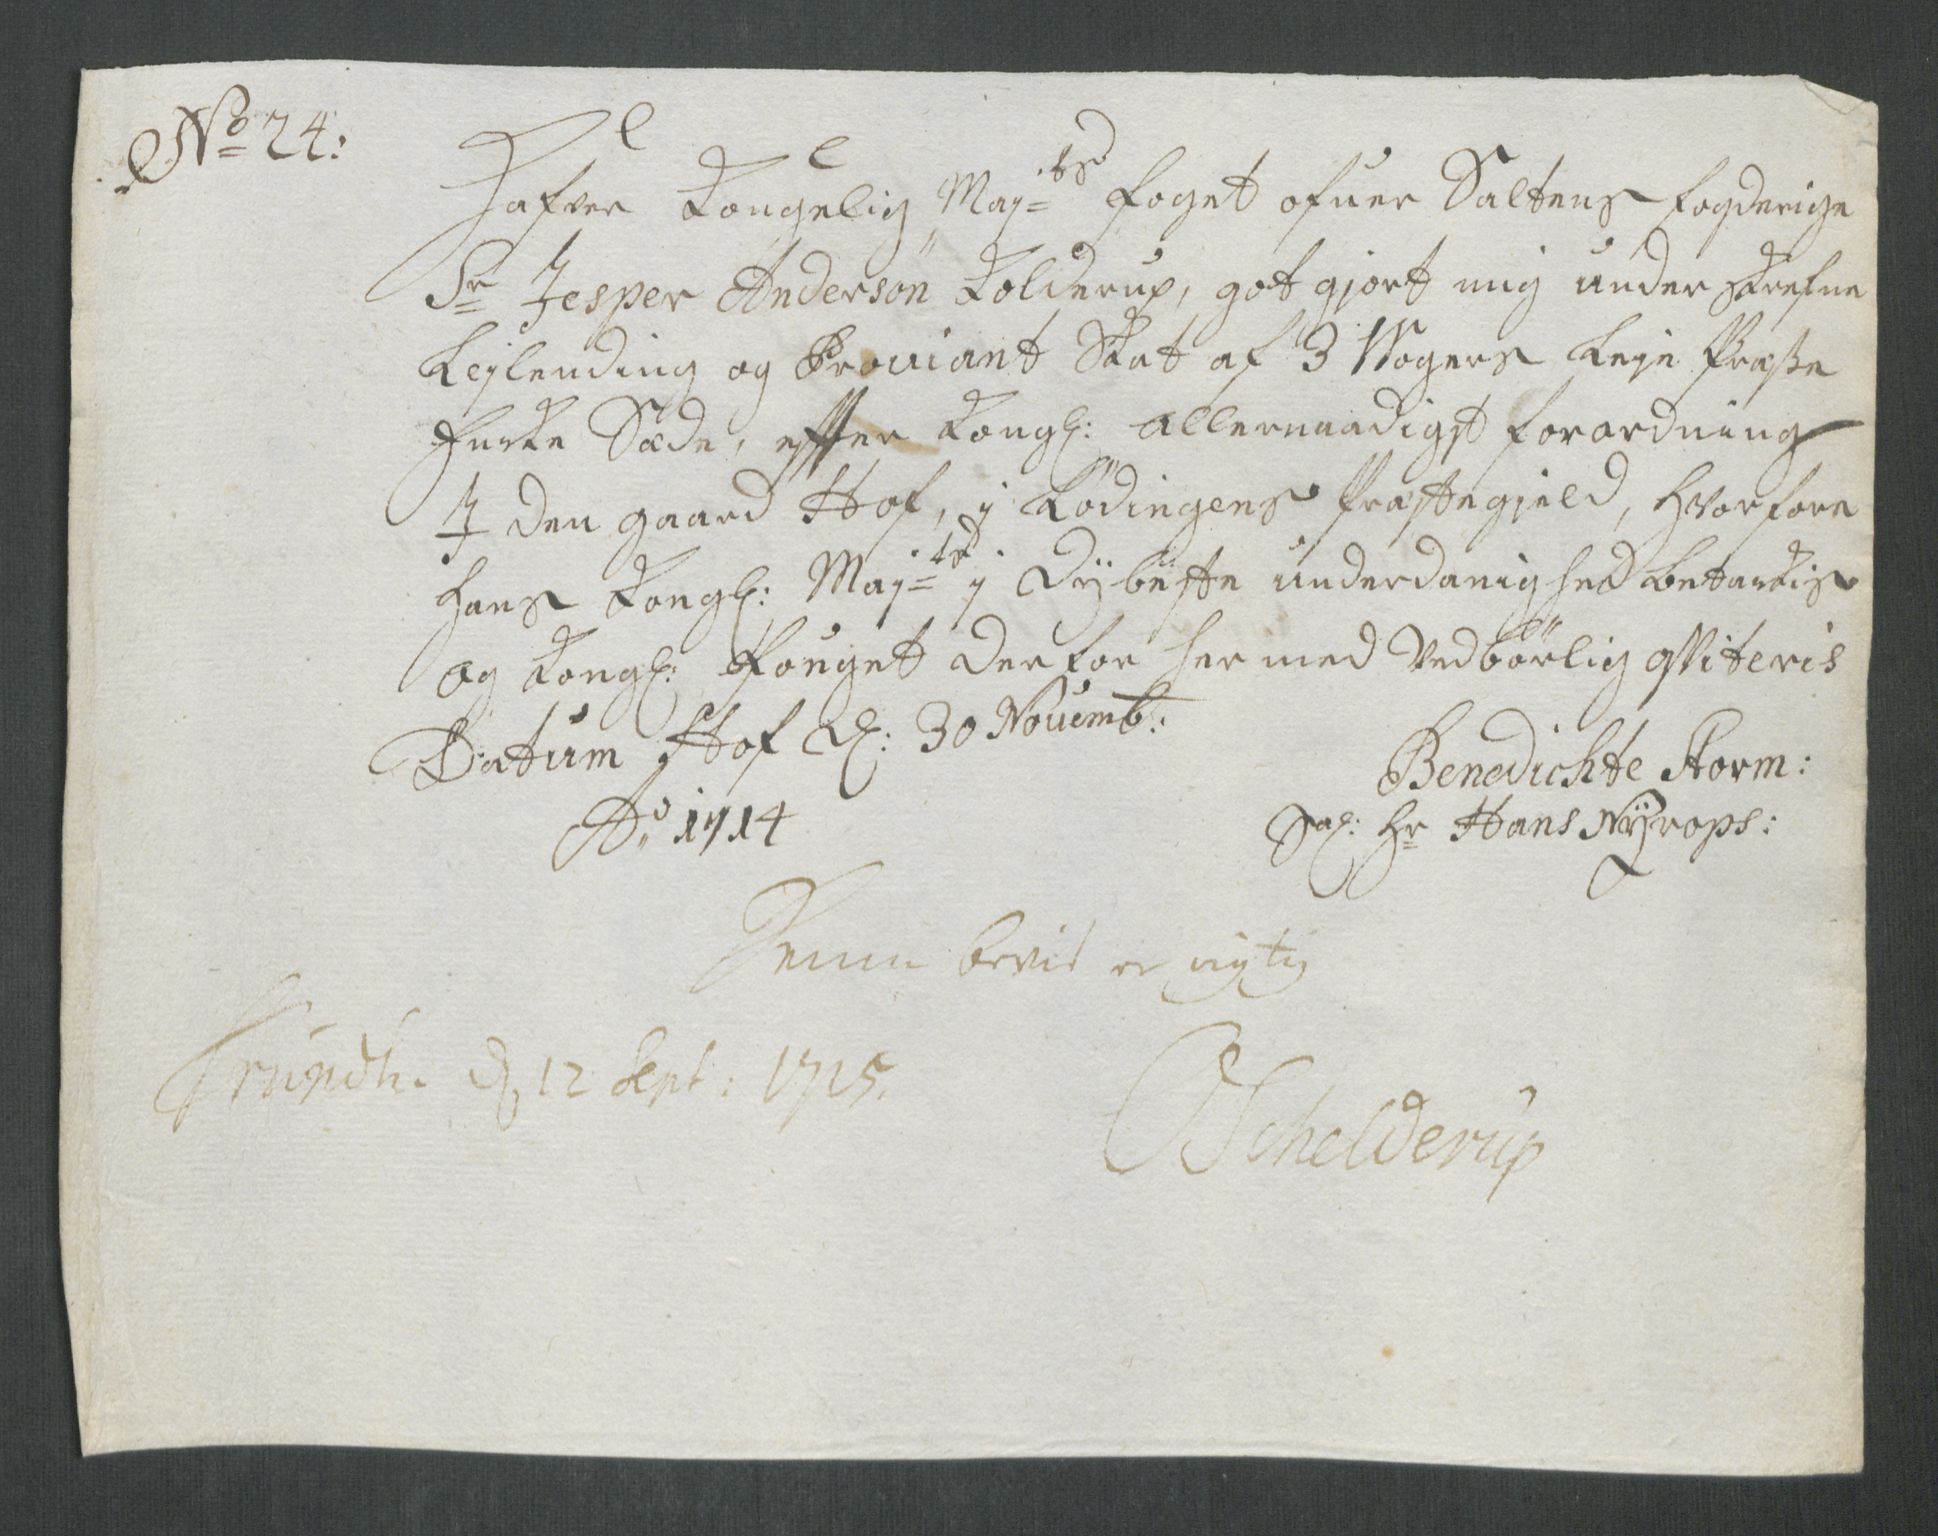 No 24:
Hafver Kongelig Maj:ts foget ofuer Saltens fogderige
Sr Jesper Andersøn Kolderup, got gjort mig underskrefne
Leylending og Proviant Skat af 3 Wogers Leye
Enke Sæde, effter Kongl: allernaadigst forordning
J den gaard Hof, i Lødingens Præstegield, hvorfore
hans Kongl: Maj:ts i dybeste underdanighed betackis
og Kongl: Fouget derfor her med vedbørlig qviteris
Datum Hof d: 30 Novemb:
Ao 1714
Benedichte Storm:
Sal: Hr Hans Nyrops:
Denne bevis er rigtig
Trundh. d 12 Sept: 1715.
Schelderup